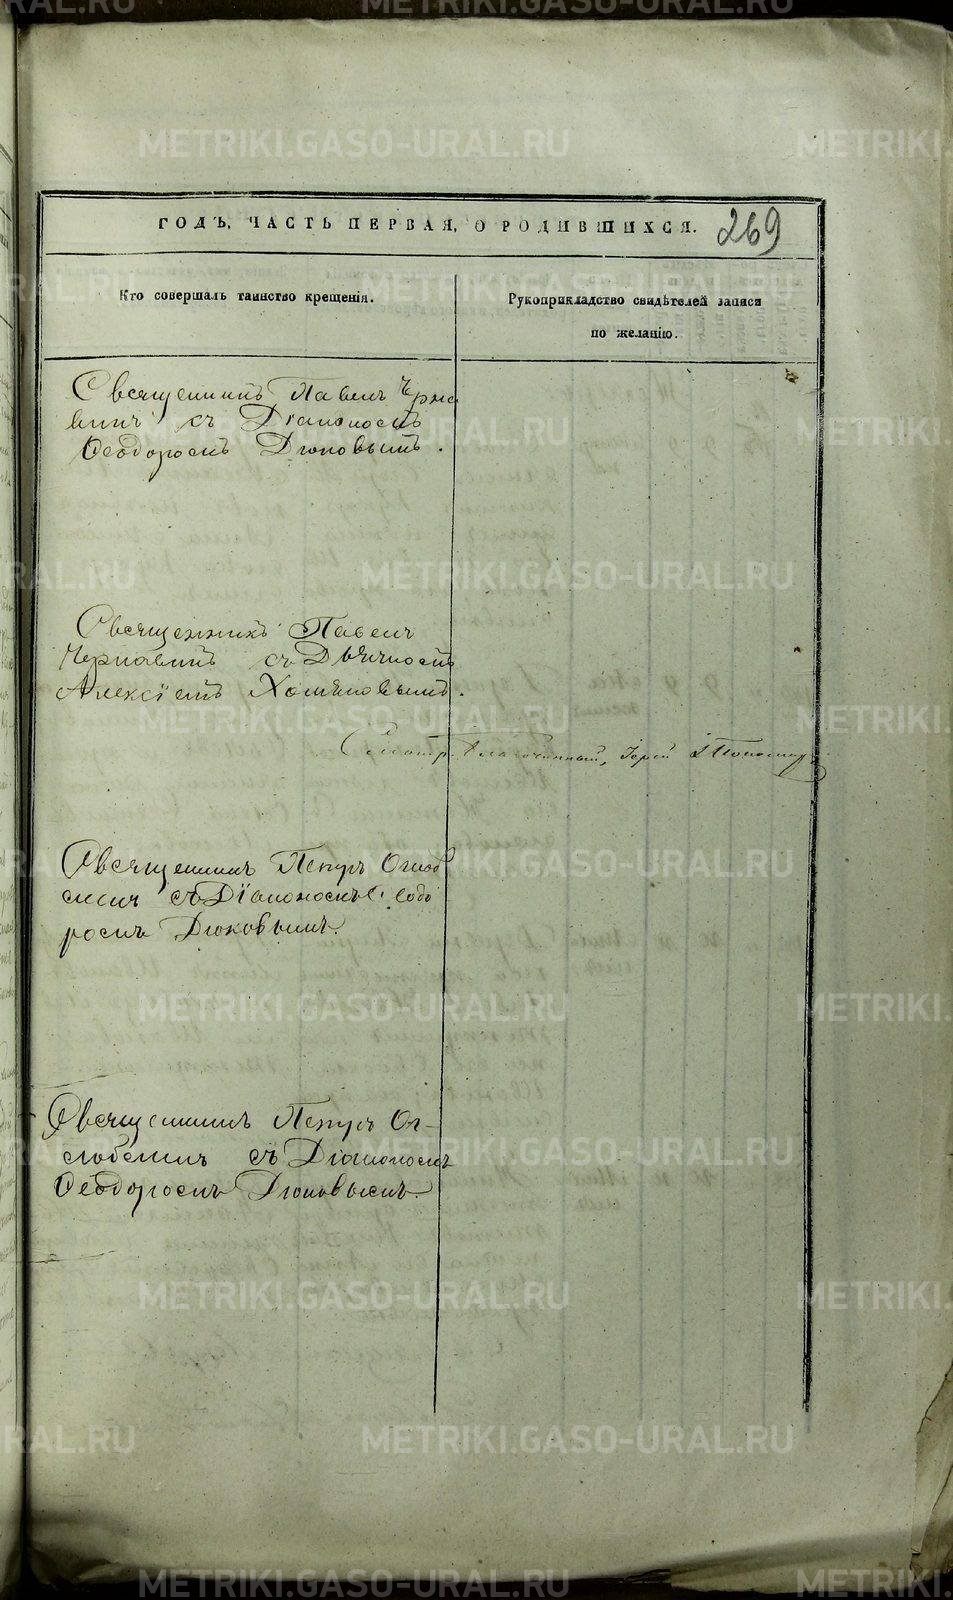 ГОДЪ, ЧАСТЬ ПЕРВАЯ, О РОДИВШИХСЯ.
269
Кто совершалъ таинство крещенія.
Рукоприкладство свидѣтелей записи
по желанію.
Священникъ Павелъ Черна
винъ съ Діакономъ
Ѳеодоромъ Дюковымъ.
Священникъ Павелъ
Чернавинъ съ Дьячкомъ
Алексіемъ Хомяковымъ.
Благочинный, Іерей
Священникъ Петръ Оглоб
линъ съ Діакономъ Ѳеодо
ромъ Дюковымъ.
Священникъ Петръ Ог-
лоблинъ съ Діакономъ
Ѳеодоромъ Дюковымъ.
METRIKI.GASO-URAL.RU